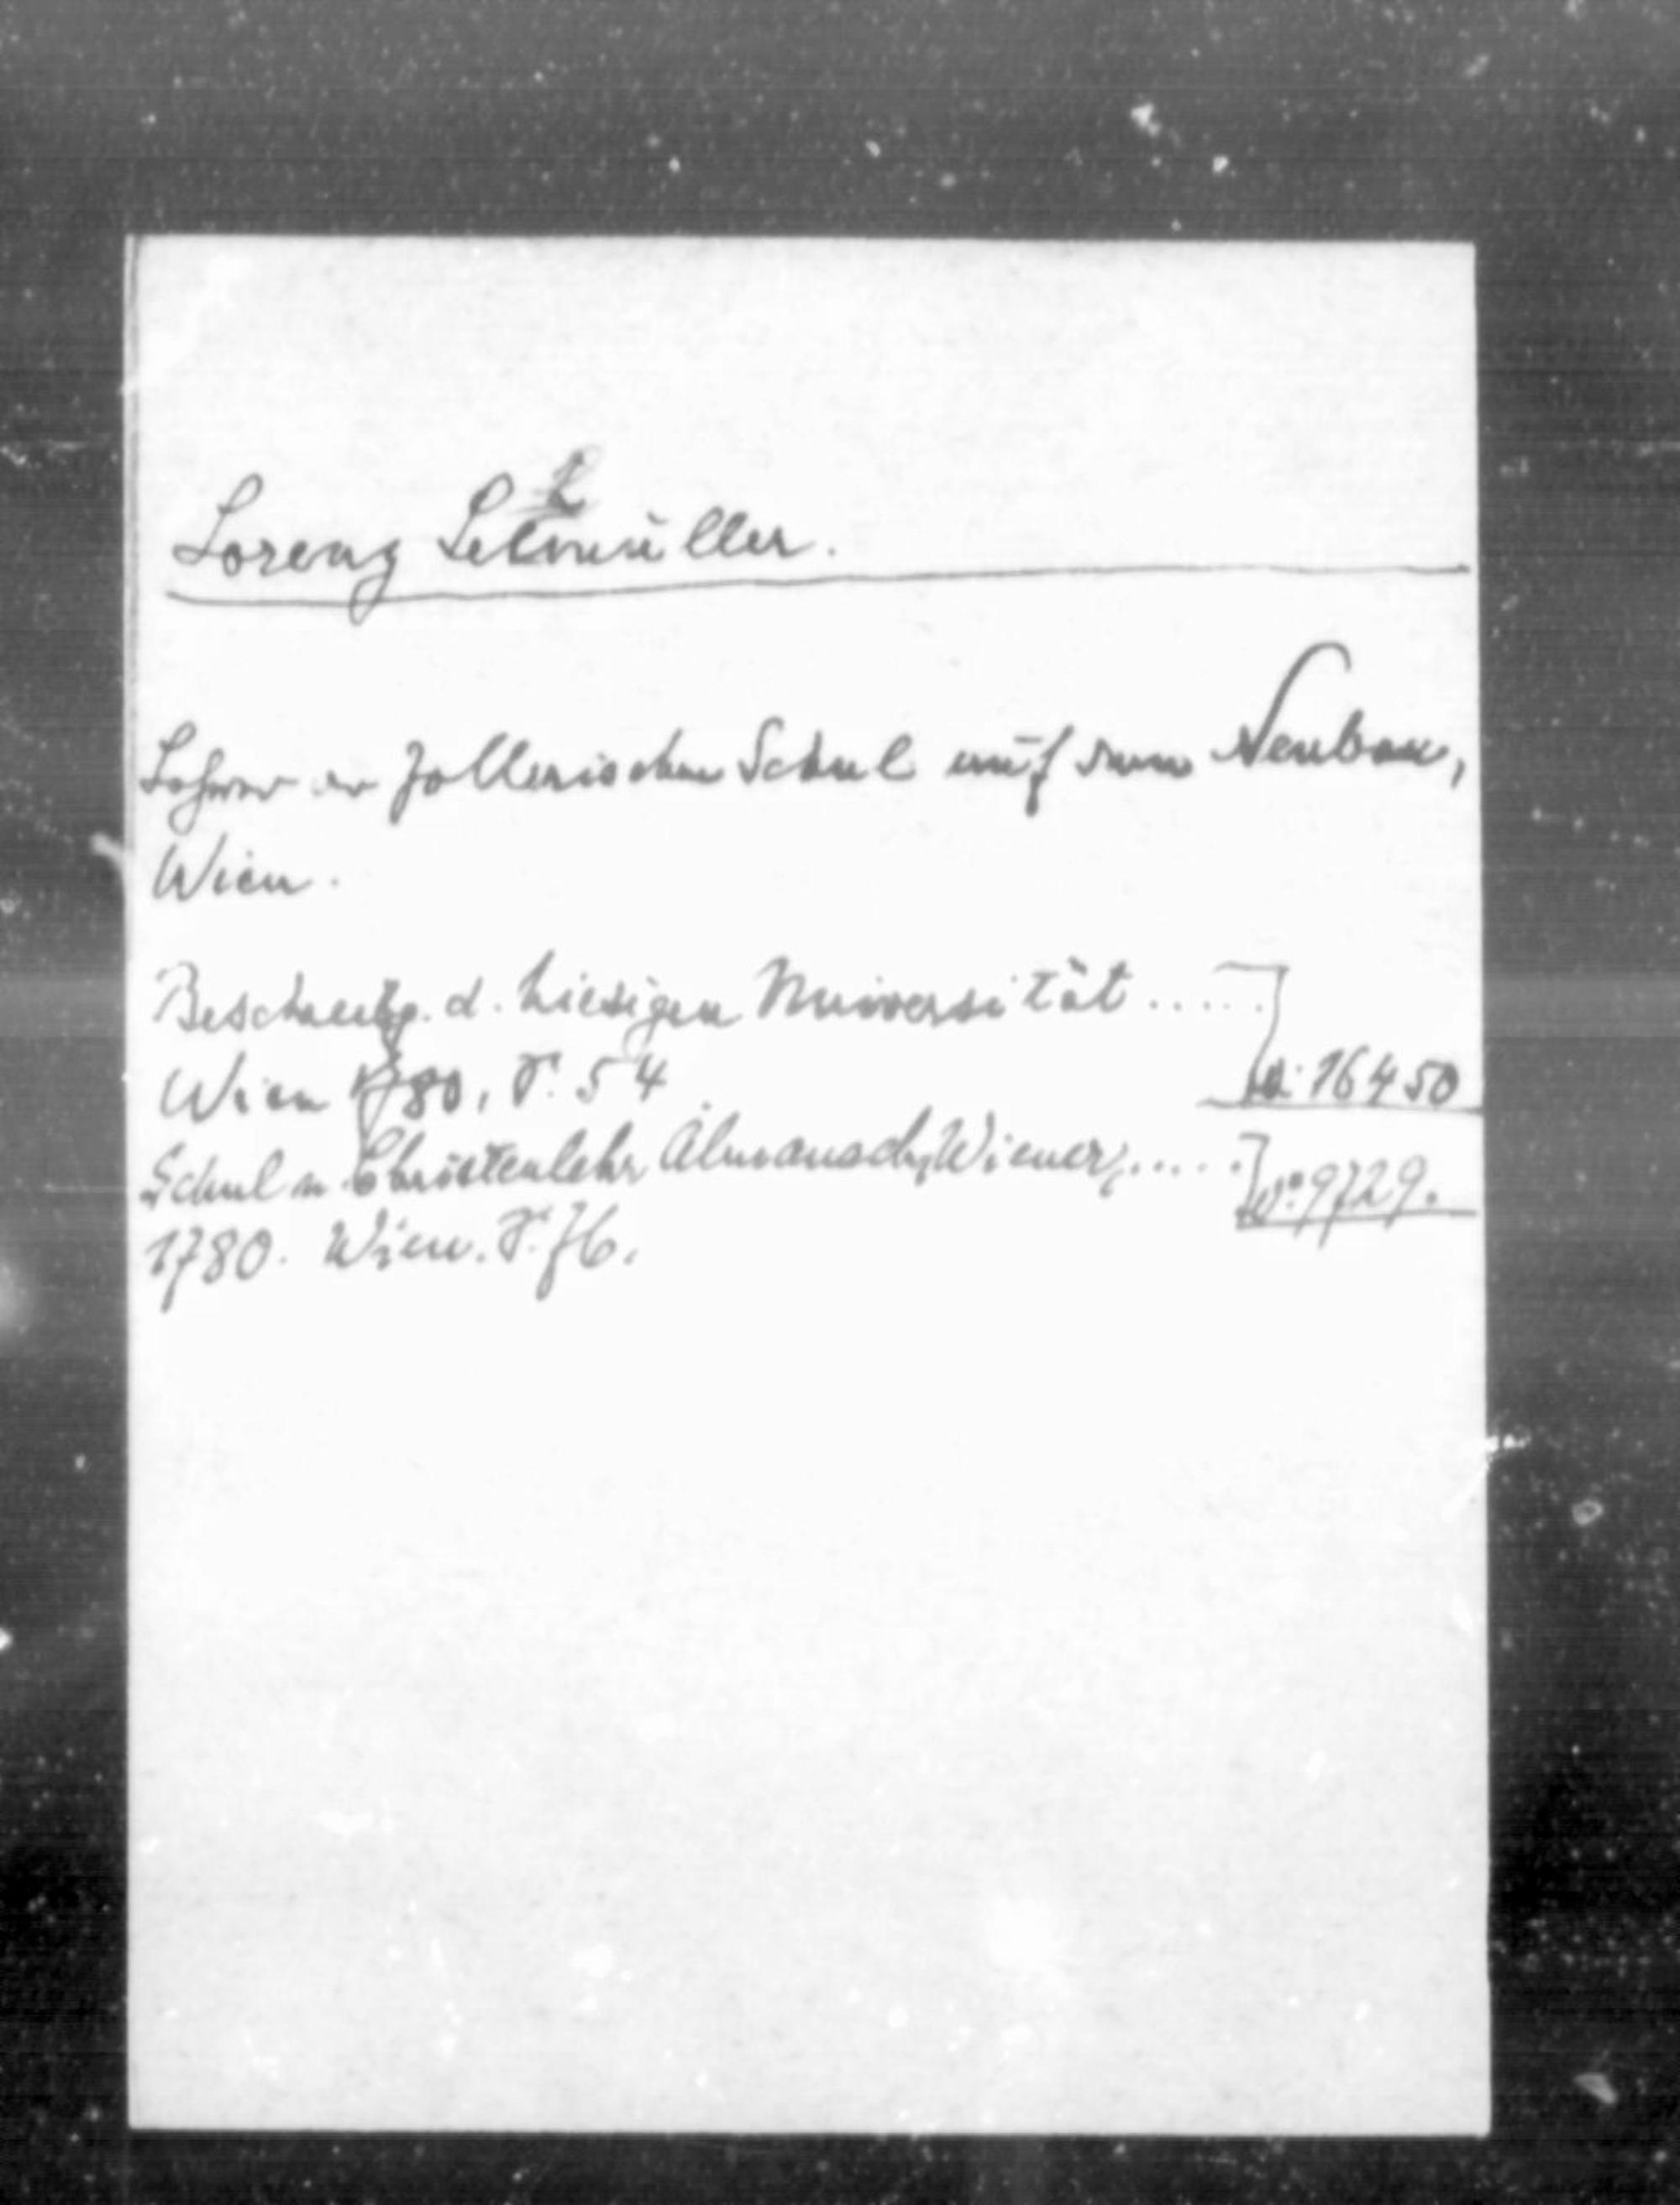 Lorenz
Lehrer der Zollerischen Schul auf dem Neubau,
Wien.
Beschreibg. d. hiesigen Universität .....
Wien 1780, S. 54 16450
Schul u. Christenlehr Almanach, Wiener, ..... No. 9729.
1780. Wien. S. 76.